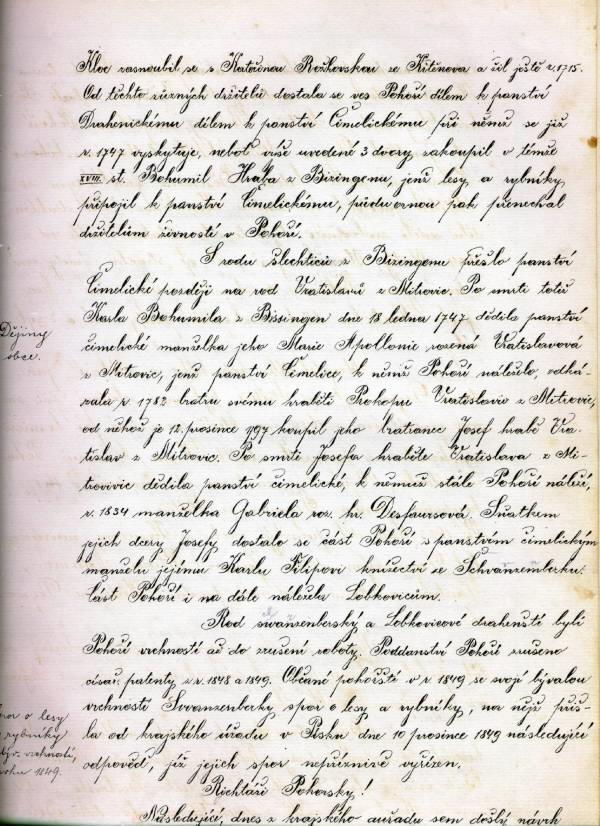 Kloc zasnoubil se s Kateřinou Rožkovskou ze Křtěnova a žil ještě r. 1715.
Od těchto různých držitelů dostala se ves Pohoří dílem k panství
Drahenickému dílem k panství Čimelickému při němž se již
r. 1747 vyskytuje, neboť výše uvedené 3 dvory zakoupil v témže
XVIII. st. Bohumil Hraba z Bizingenu, jenž lesy a rybníky
připojil k panství Čimelickému, půdu ornou pak přenechal
držitelům živností v Pohoří.
S rodu šlechticů z Bizingenu přešlo panství
Čimelické později na rod Vratislavů z Mitrovic. Po smrti totiž
Karla Bohumila z Bissingen dne 18 ledna 1747 dědila panství
Dějiny
obce.
čimelické manželka jeho Marie Apollonie rozená Vratislavová
z Mitrovic, jenž panství Čimelice, k němuž Pohoří náleželo, odká-
zala r. 1782 bratru svému hraběti Prokopu Vratislavu z Mitrovic,
od něhož je 12. prosince 1797 koupil jeho bratranec Josef hrabě Vra-
tislav z Mitrovic. Po smrti Josefa hraběte Vratislava z Mi-
trovic dědila panství čimelické, k němuž stále Pohoří náleží,
r. 1834 manželka Gabriela roz. hr. Desfaursová. Sňatkem
jejich dcery Josefy dostalo se část Pohoří s panstvím čimelickým
manželu jejímu Karlu Filipovi knížectví ze Schvanzemberku.
Část Pohoří i na dále náležela Lobkovicům.
Rod swanzenberský a Lobkovicové drahenští byli
Pohoří vrchností až do zrušení roboty. Poddanství Pohoří zrušeno
císař. patenty z r. 1848 a 1849. Občané pohořští v r. 1849 se svojí bývalou
vrchností Svvanzenberky spor o lesy a rybníky, na nějž přiš-
la od krajského úřadu v Písku dne 10 prosince 1849 následující
odpověď, jíž jejich spor nepříznivě vyřízen.
spor o lesy
rybníky
býv. vrchností
roku 1849.
Richtáři Pohorsky!
Následující, dnes z krajského auřadu sem došlý návrh